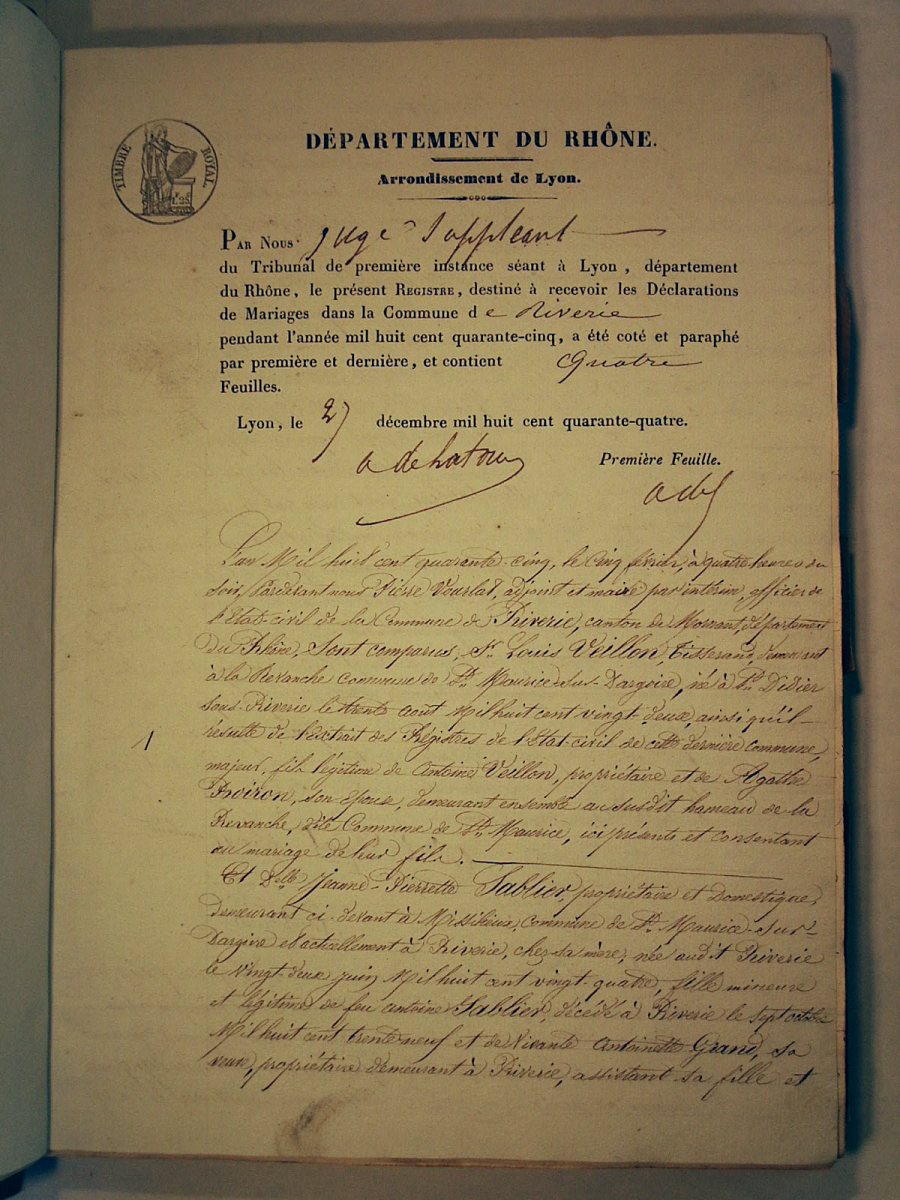 TIMBRE ROYAL.
1F.25
DÉPARTEMENT DU RHÔNE.
Arrondissement de Lyon.
PAR NOUS juge Suppléant
du Tribunal de première instance séant à Lyon, département
du Rhône, le présent REGISTRE, destiné à recevoir les Déclarations
de Mariages dans la Commune de Riverie
pendant l'année mil huit cent quarante-cinq, a été coté et paraphé
par première et dernière, et contient Quatre
Feuilles.
Lyon, le 27 décembre mil huit cent quarante-quatre.
Première Feuille.
L'an Mil huit cent quarante-cinq, le cinq février, à quatre heures du
soir, Pardevant nous Pierre Vourlat, adjoint et maire par intérim, officier de
l'état-civil de la Commune de Riverie, canton de Mornant, département
du Rhône, Sont comparus, Sr. Louis Veillon, tisserand, demeurant
à la Revanche commune de St. Maurice-Sur-Dargoire, né à St. Didier
sous-Riverie le trente aout Mil huit cent vingt-deux, ainsi qu'il
résulte de l'extrait des Régistres de l'état-civil de cette dernière commune,
1
majeur, fils légitime de Antoine Veillon, propriétaire et de Agathe
Freiron, son épouse, demeurant ensemble au susdit hameau de la
Revanche, dite Commune de St. Maurice, ici présents et consentant
au mariage de leur fils.
Et Dlle. Jeanne-Pierrette Sablier, propriétaire et domestique,
demeurant ci-devant à Missilieux, Commune de St. Maurice-Sur-
Dargoire et actuellement à Riverie, chez sa mère, née audit Riverie
le vingt-deux juin Mil huit cent vingt-quatre, fille mineure
et légitime de feu antoine Sablier, décédé à Riverie le sept octobre
Mil huit cent trente neuf et de vivante Antoinette Grand, sa
veuve, propriétaire demeurant à Riverie, assistant sa fille et